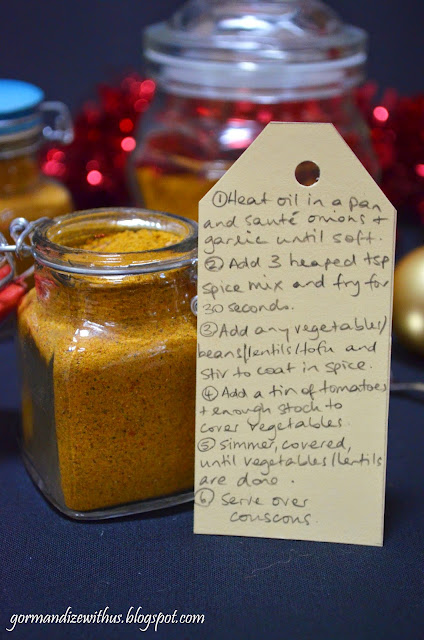 ① Heat oil in a pan
and sauté onions +
garlic until soft.
② Add 3 heaped tsp
spice mix and fry for
30 seconds.
③ Add any vegetables/
beans/lentils/tofu and
stir to coat in spice.
④ Add a tin of tomatoes
+ enough stock to
cover vegetables.
⑤ Simmer, covered,
until vegetables/lentils
are done.
⑥ Serve over
couscous.
gormandizewithus.blogspot.com